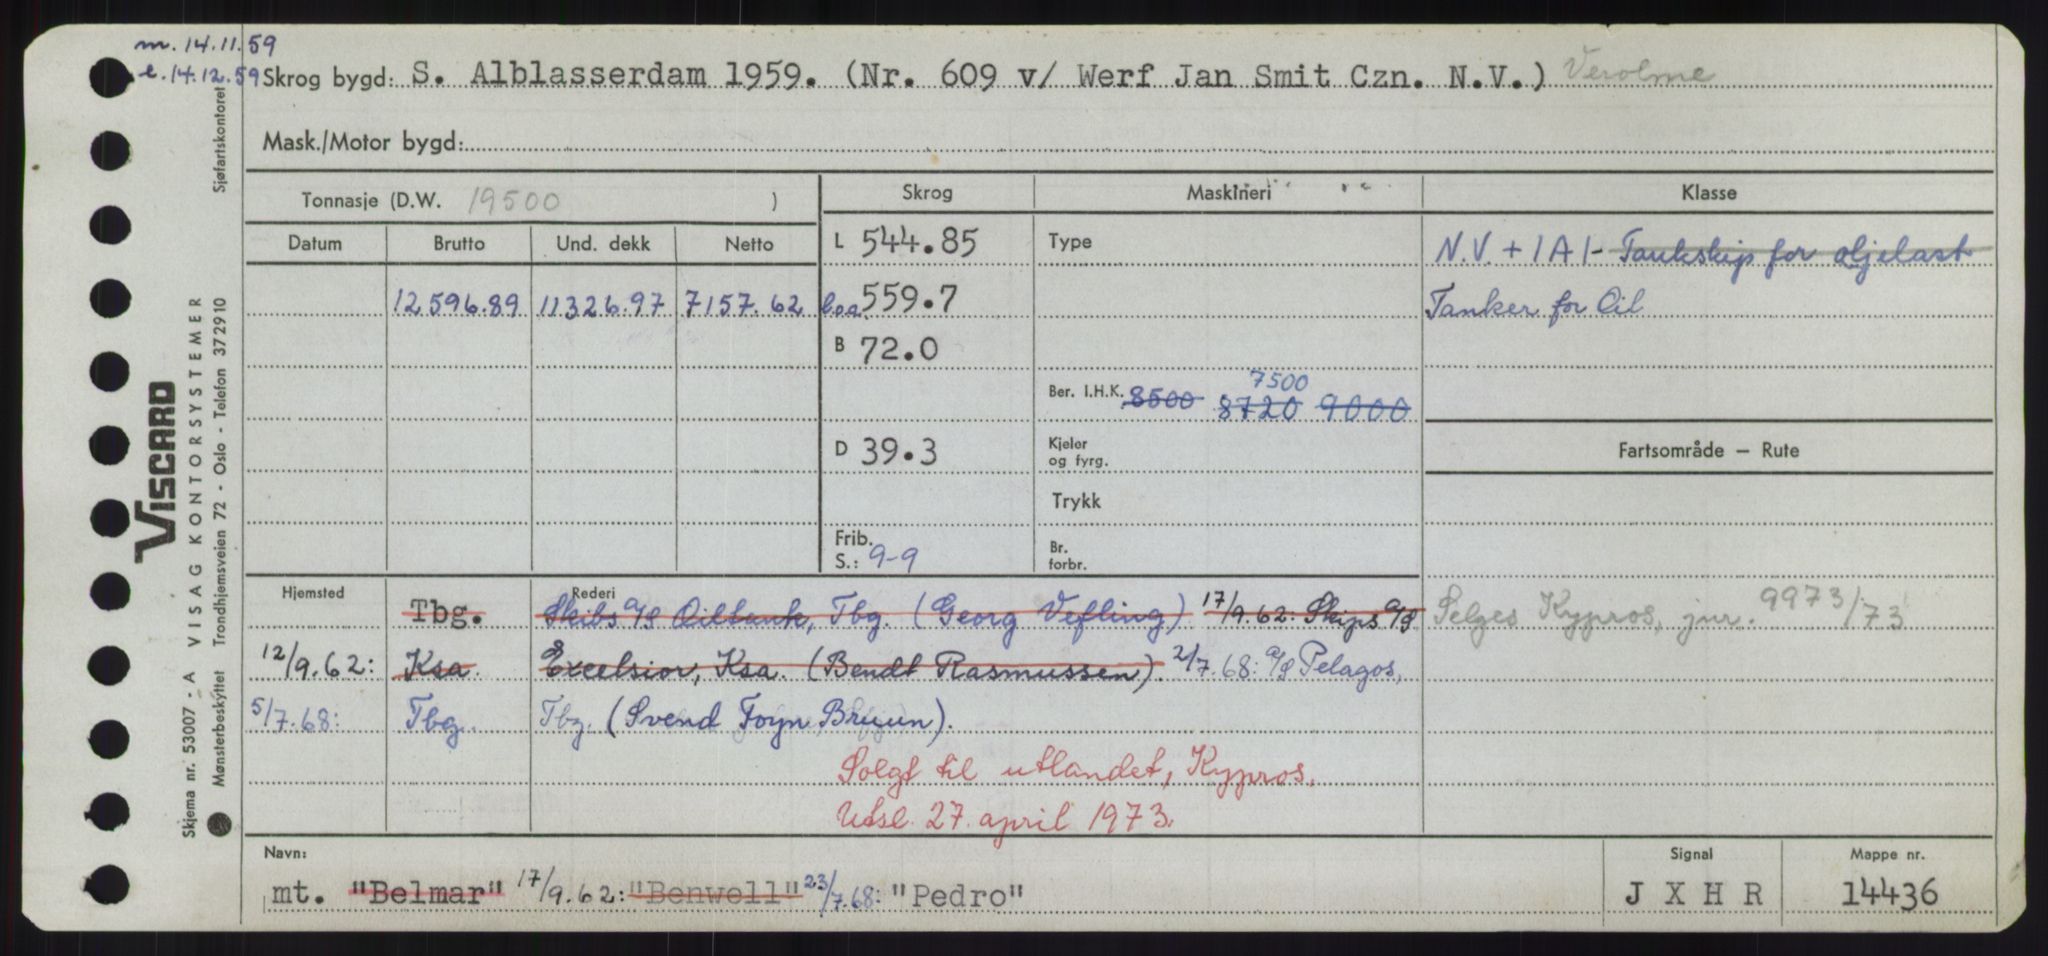 m. 14.11.59
l. 14.12.59
Skrog bygd: S. Alblasserdam 1959. (Nr. 609 v/ Werf Jan Smit Czn. N.V.) Verolme
Mask./Motor bygd:
Tonnasje (D.W. 19500 )
Skrog
Maskineri
Klasse
Datum Brutto Und. dekk Netto
L 544.85
Type
N.V. + 1A1- Tankskip for oljelast
12596.89 11326.97 7157.62
l.o.a. 559.7
Tanker for Oil
B 72.0
7500
Ber. I.H.K. 8500 8720 9000
D 39.3
Kjeler
og fyrg.
Fartsområde — Rute
Trykk
Frib.
S.: 9-9
Br.
forbr.
Hjemsted
Rederi
Tbg. Skibs A/S Oiltank, Tbg. (Georg Vefling) 17/9.62: Skips A/S
Selges Kypros, jnr. 9973/73
12/9.62: Ksa. Excelsior, Ksa. (Bendt Rasmussen). 2/7.68: A/S Pelagos,
5/7.68: Tbg. Tbg. (Svend Foyn Bruun).
Solgt til utlandet, Kypros.
Utsl. 27. april 1973.
Navn:
Signal
Mappe nr.
mt. "Belmar" 17/9.62: "Benwell" 23/7.68: "Pedro"
J X H R
14436
Sjøfartskontoret
VISCARD
VISAG KONTORSYSTEMER
Trondhjemsveien 72 - Oslo - Telefon 372910
Skjema nr. 53007 - A
Mønsterbeskyttet